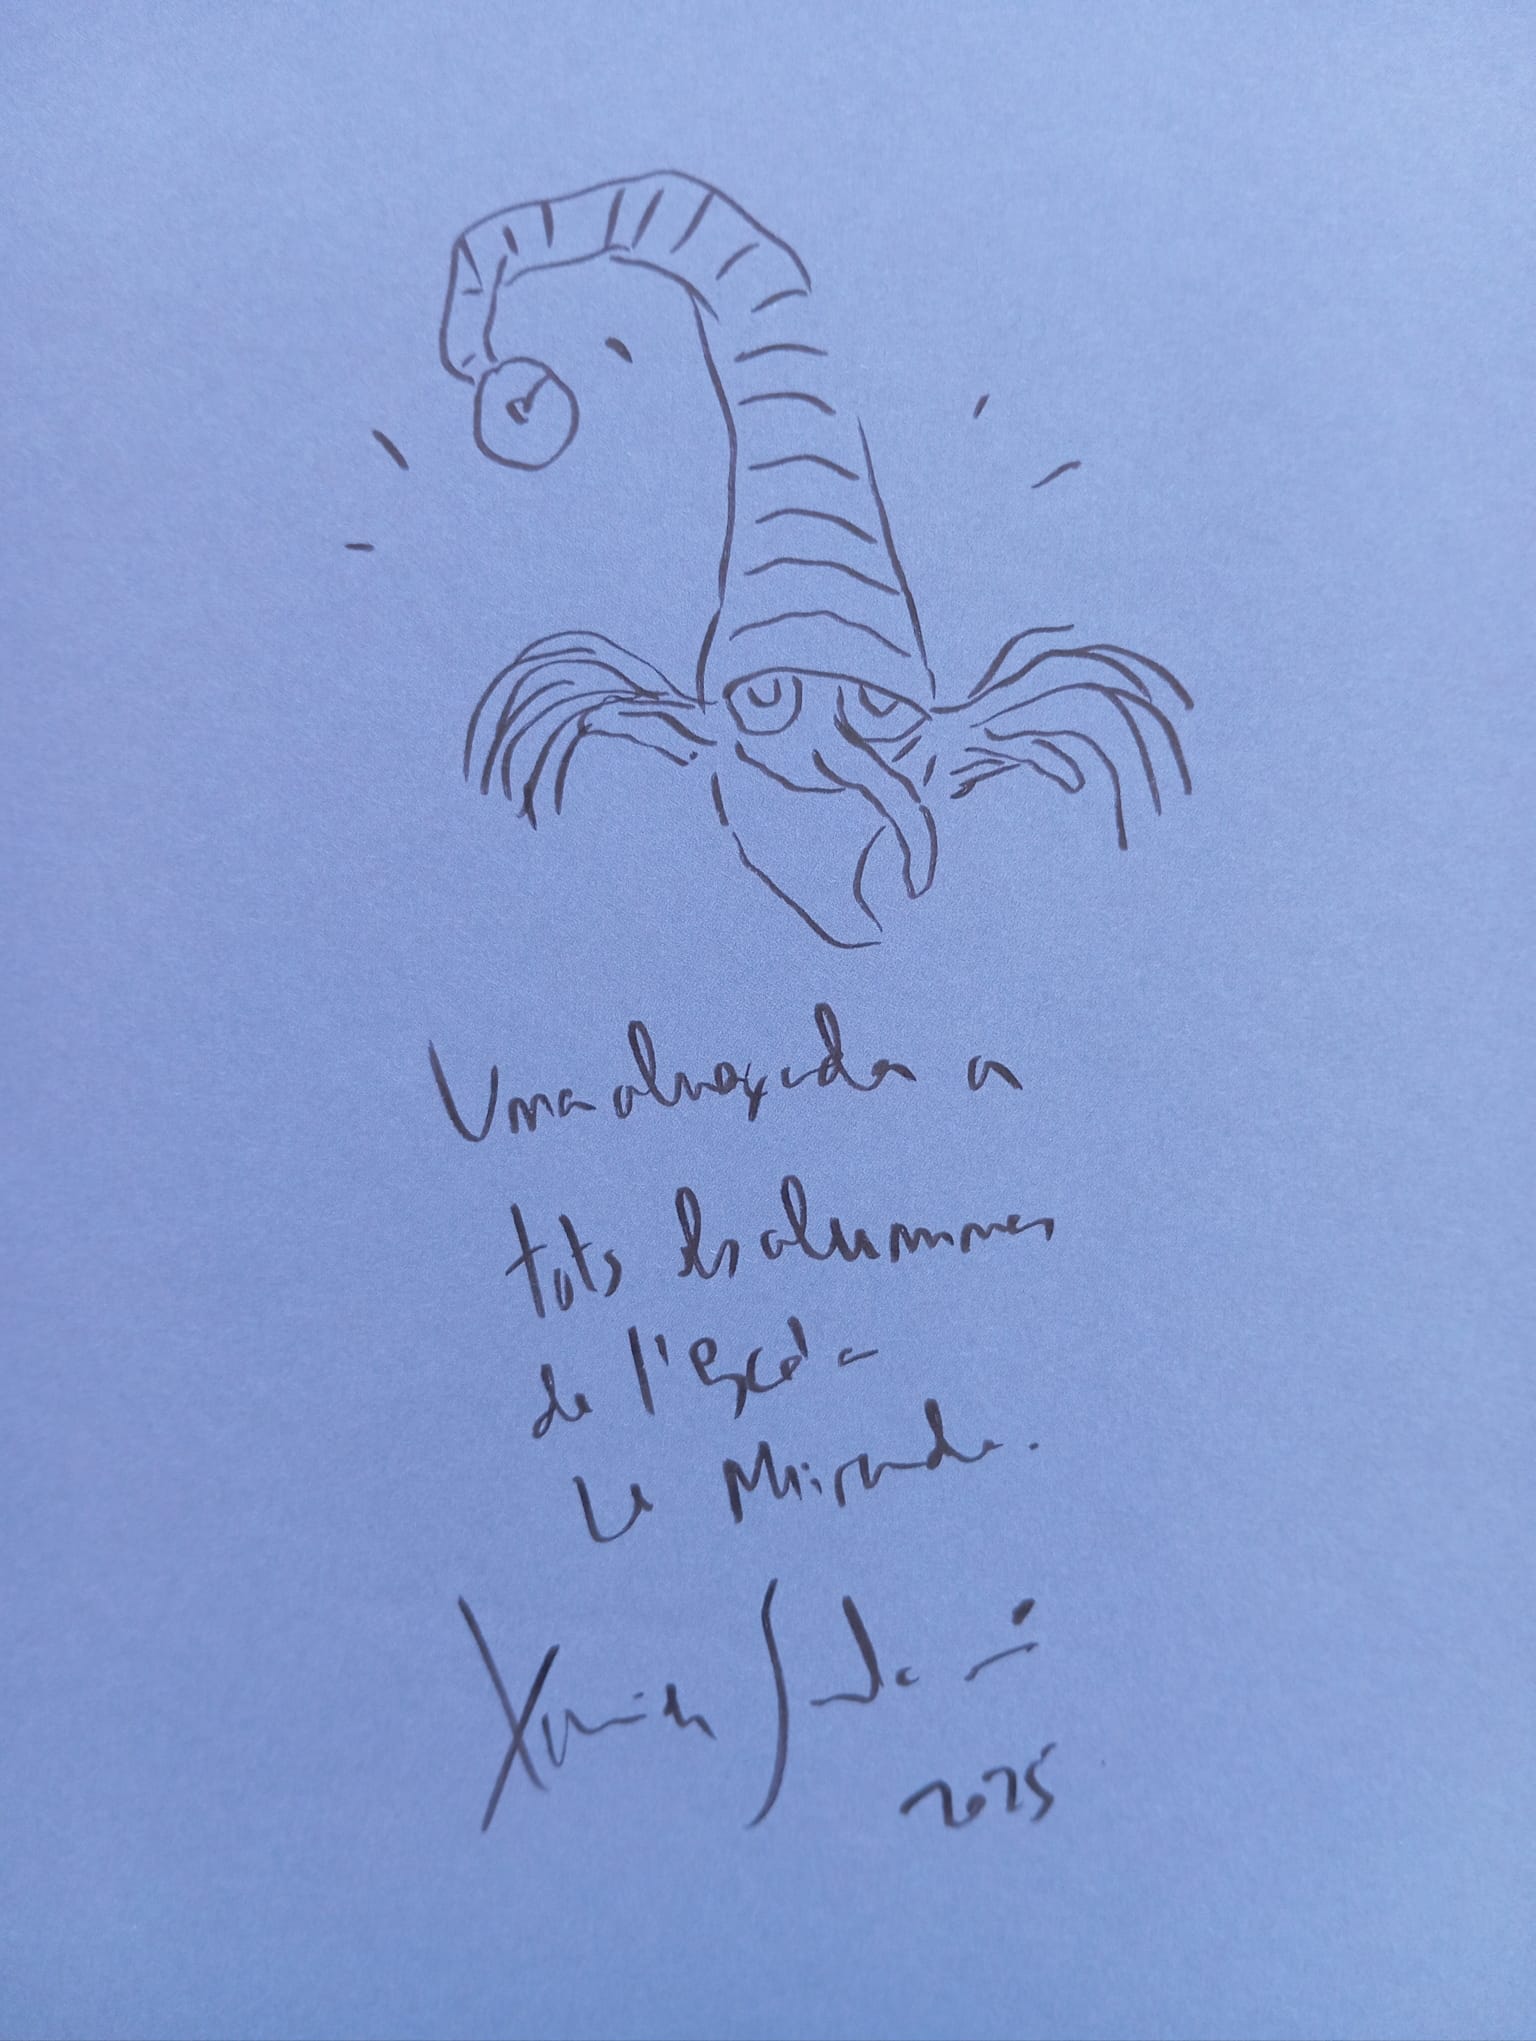 Una abraçada a
tots els alumnes
de l'Escola
La Miranda.
Xavier
2025